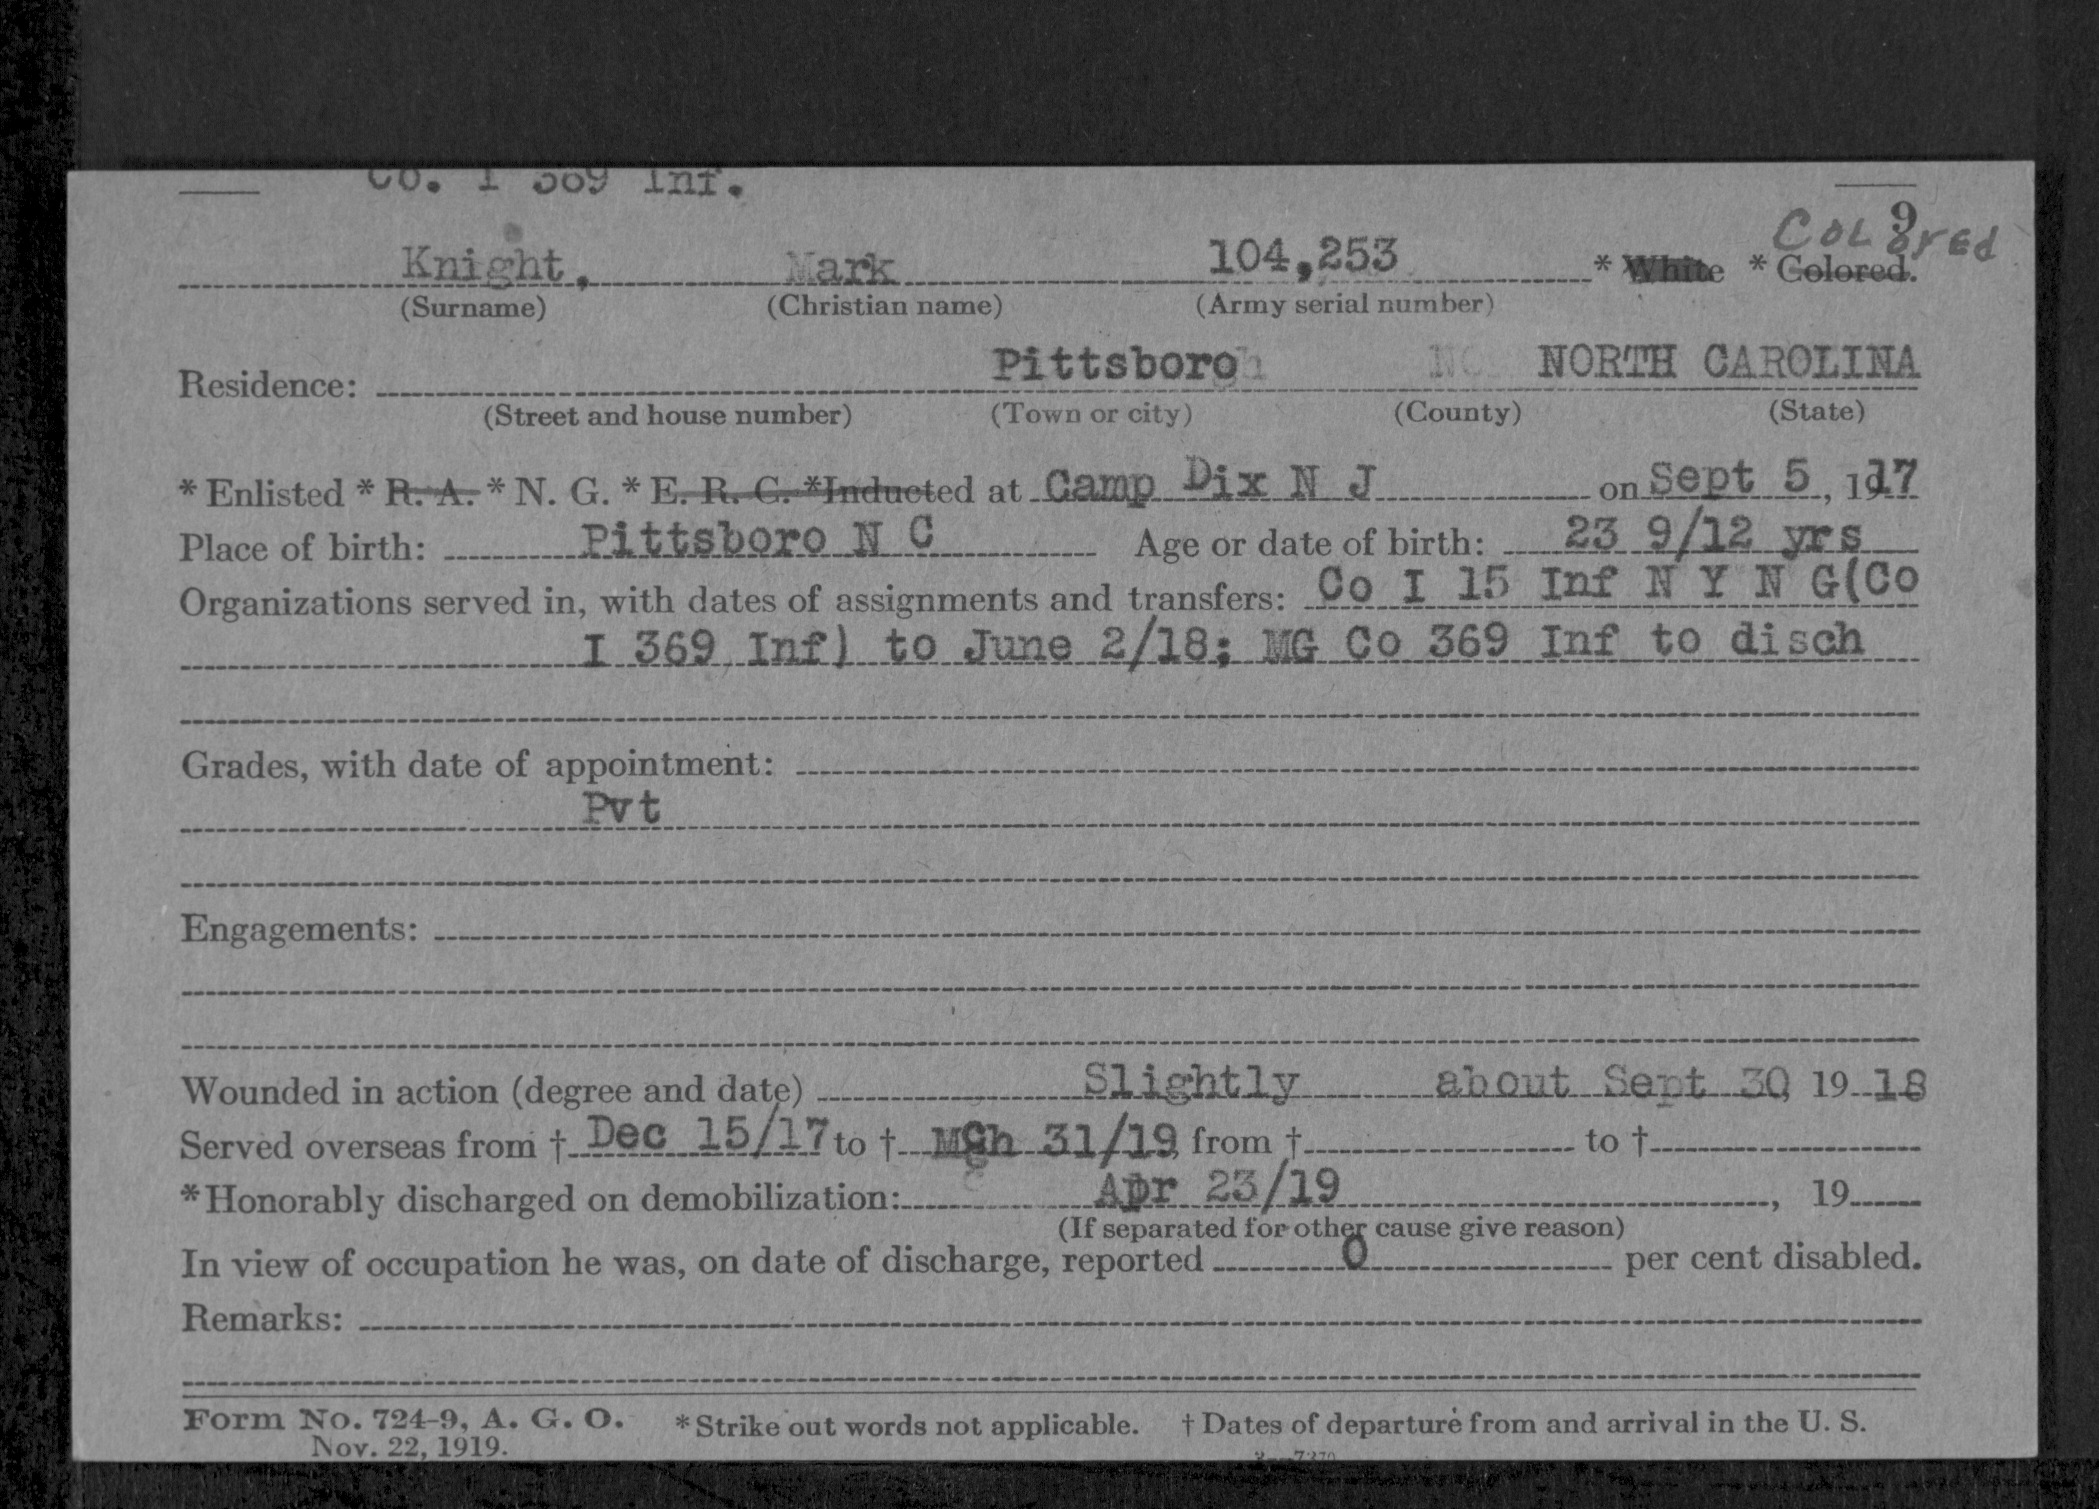 Co. I 369 Inf.
9
Colored
Knight, Mark 104,253 * White * Colored.
(Surname) (Christian name) (Army serial number)
Residence: Pittsboro NORTH CAROLINA
(Street and house number) (Town or city) (County) (State)
* Enlisted * R. A. * N. G. * E. R. C. *Inducted at Camp Dix N J on Sept 5, 1917
Place of birth: Pittsboro N C Age or date of birth: 23 9/12 yrs
Organizations served in, with dates of assignments and transfers: Co I 15 Inf N Y N G(Co
I 369 Inf) to June 2/18; MG Co 369 Inf to disch
Grades, with date of appointment:
Pvt
Engagements:
Wounded in action (degree and date) Slightly about Sept 30, 19 18
Served overseas from † Dec 15/17 to † Mch 31/19, from † to †
* Honorably discharged on demobilization: Apr 23/19 , 19
(If separated for other cause give reason)
In view of occupation he was, on date of discharge, reported 0 per cent disabled.
Remarks:
Form No. 724-9, A. G. O. * Strike out words not applicable. † Dates of departure from and arrival in the U. S.
Nov. 22, 1919.